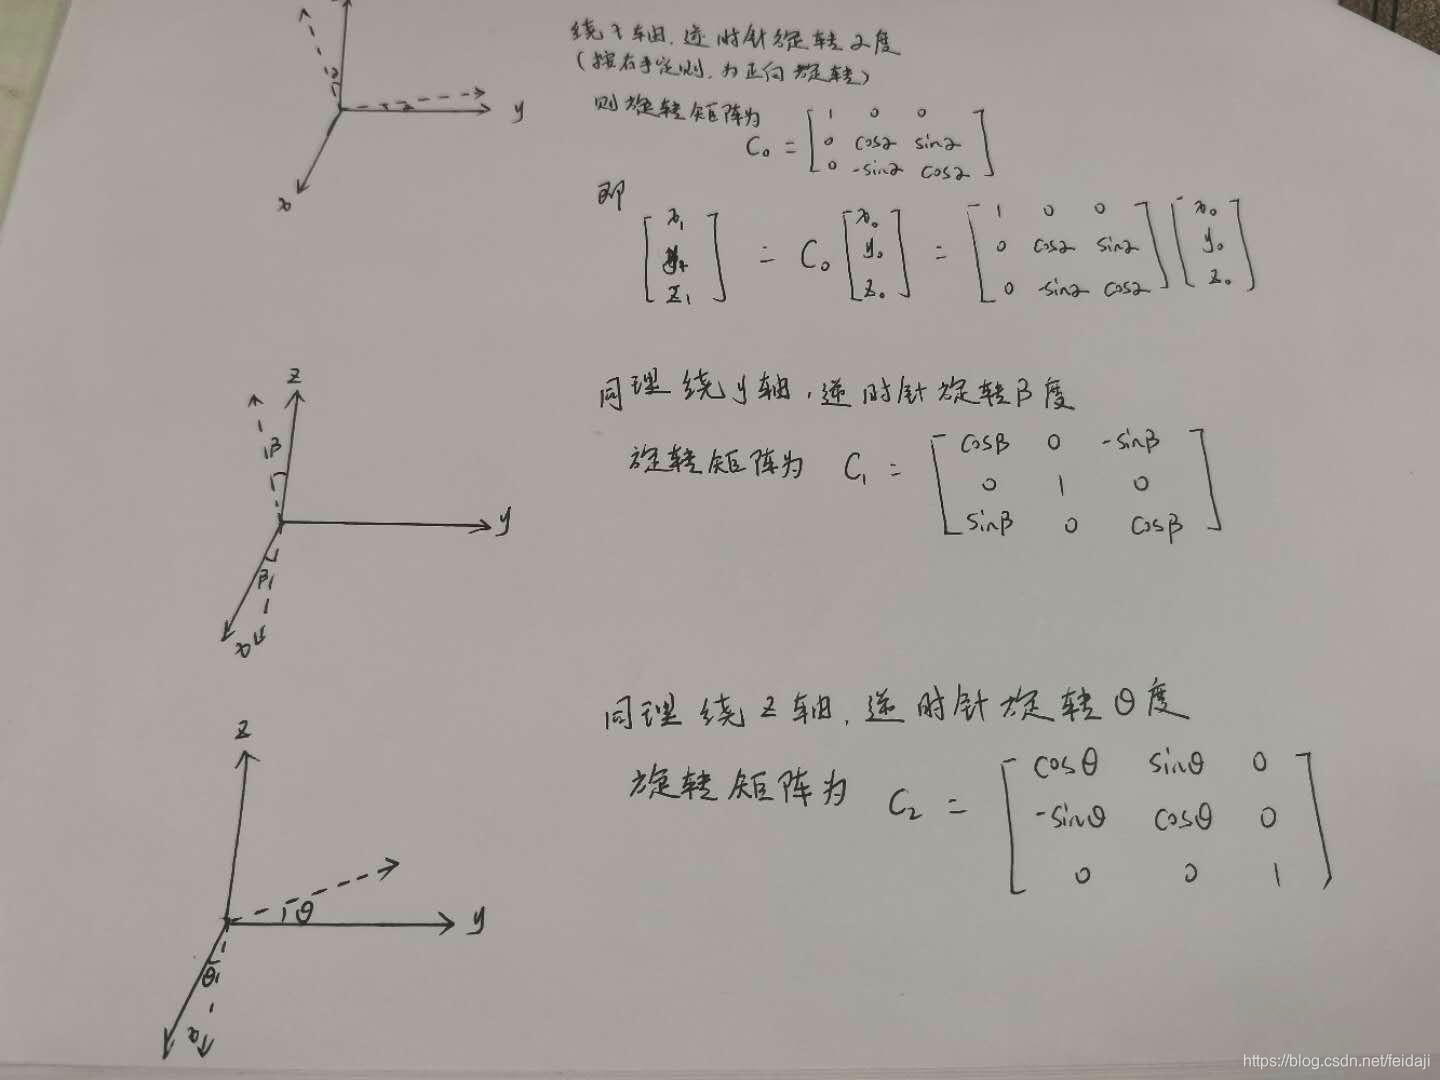 绕x轴,逆时针旋转α度
(按右手定则,为正向旋转)
则旋转矩阵为
C₀ = [ 1 0 0
0 cosα sinα
0 -sinα cosα ]
即
[ x₁ y₁ z₁ ] = C₀ [ x₀ y₀ z₀ ] = [ 1 0 0
0 cosα sinα
0 -sinα cosα ] [ x₀ y₀ z₀ ]
α
y
x
同理绕y轴,逆时针旋转β度
旋转矩阵为 C₁ = [ cosβ 0 -sinβ
0 1 0
sinβ 0 cosβ ]
z
β
y
β
x
同理绕z轴,逆时针旋转θ度
旋转矩阵为 C₂ = [ cosθ sinθ 0
-sinθ cosθ 0
0 0 1 ]
z
θ
y
θ
x
https://blog.csdn.net/feidaji